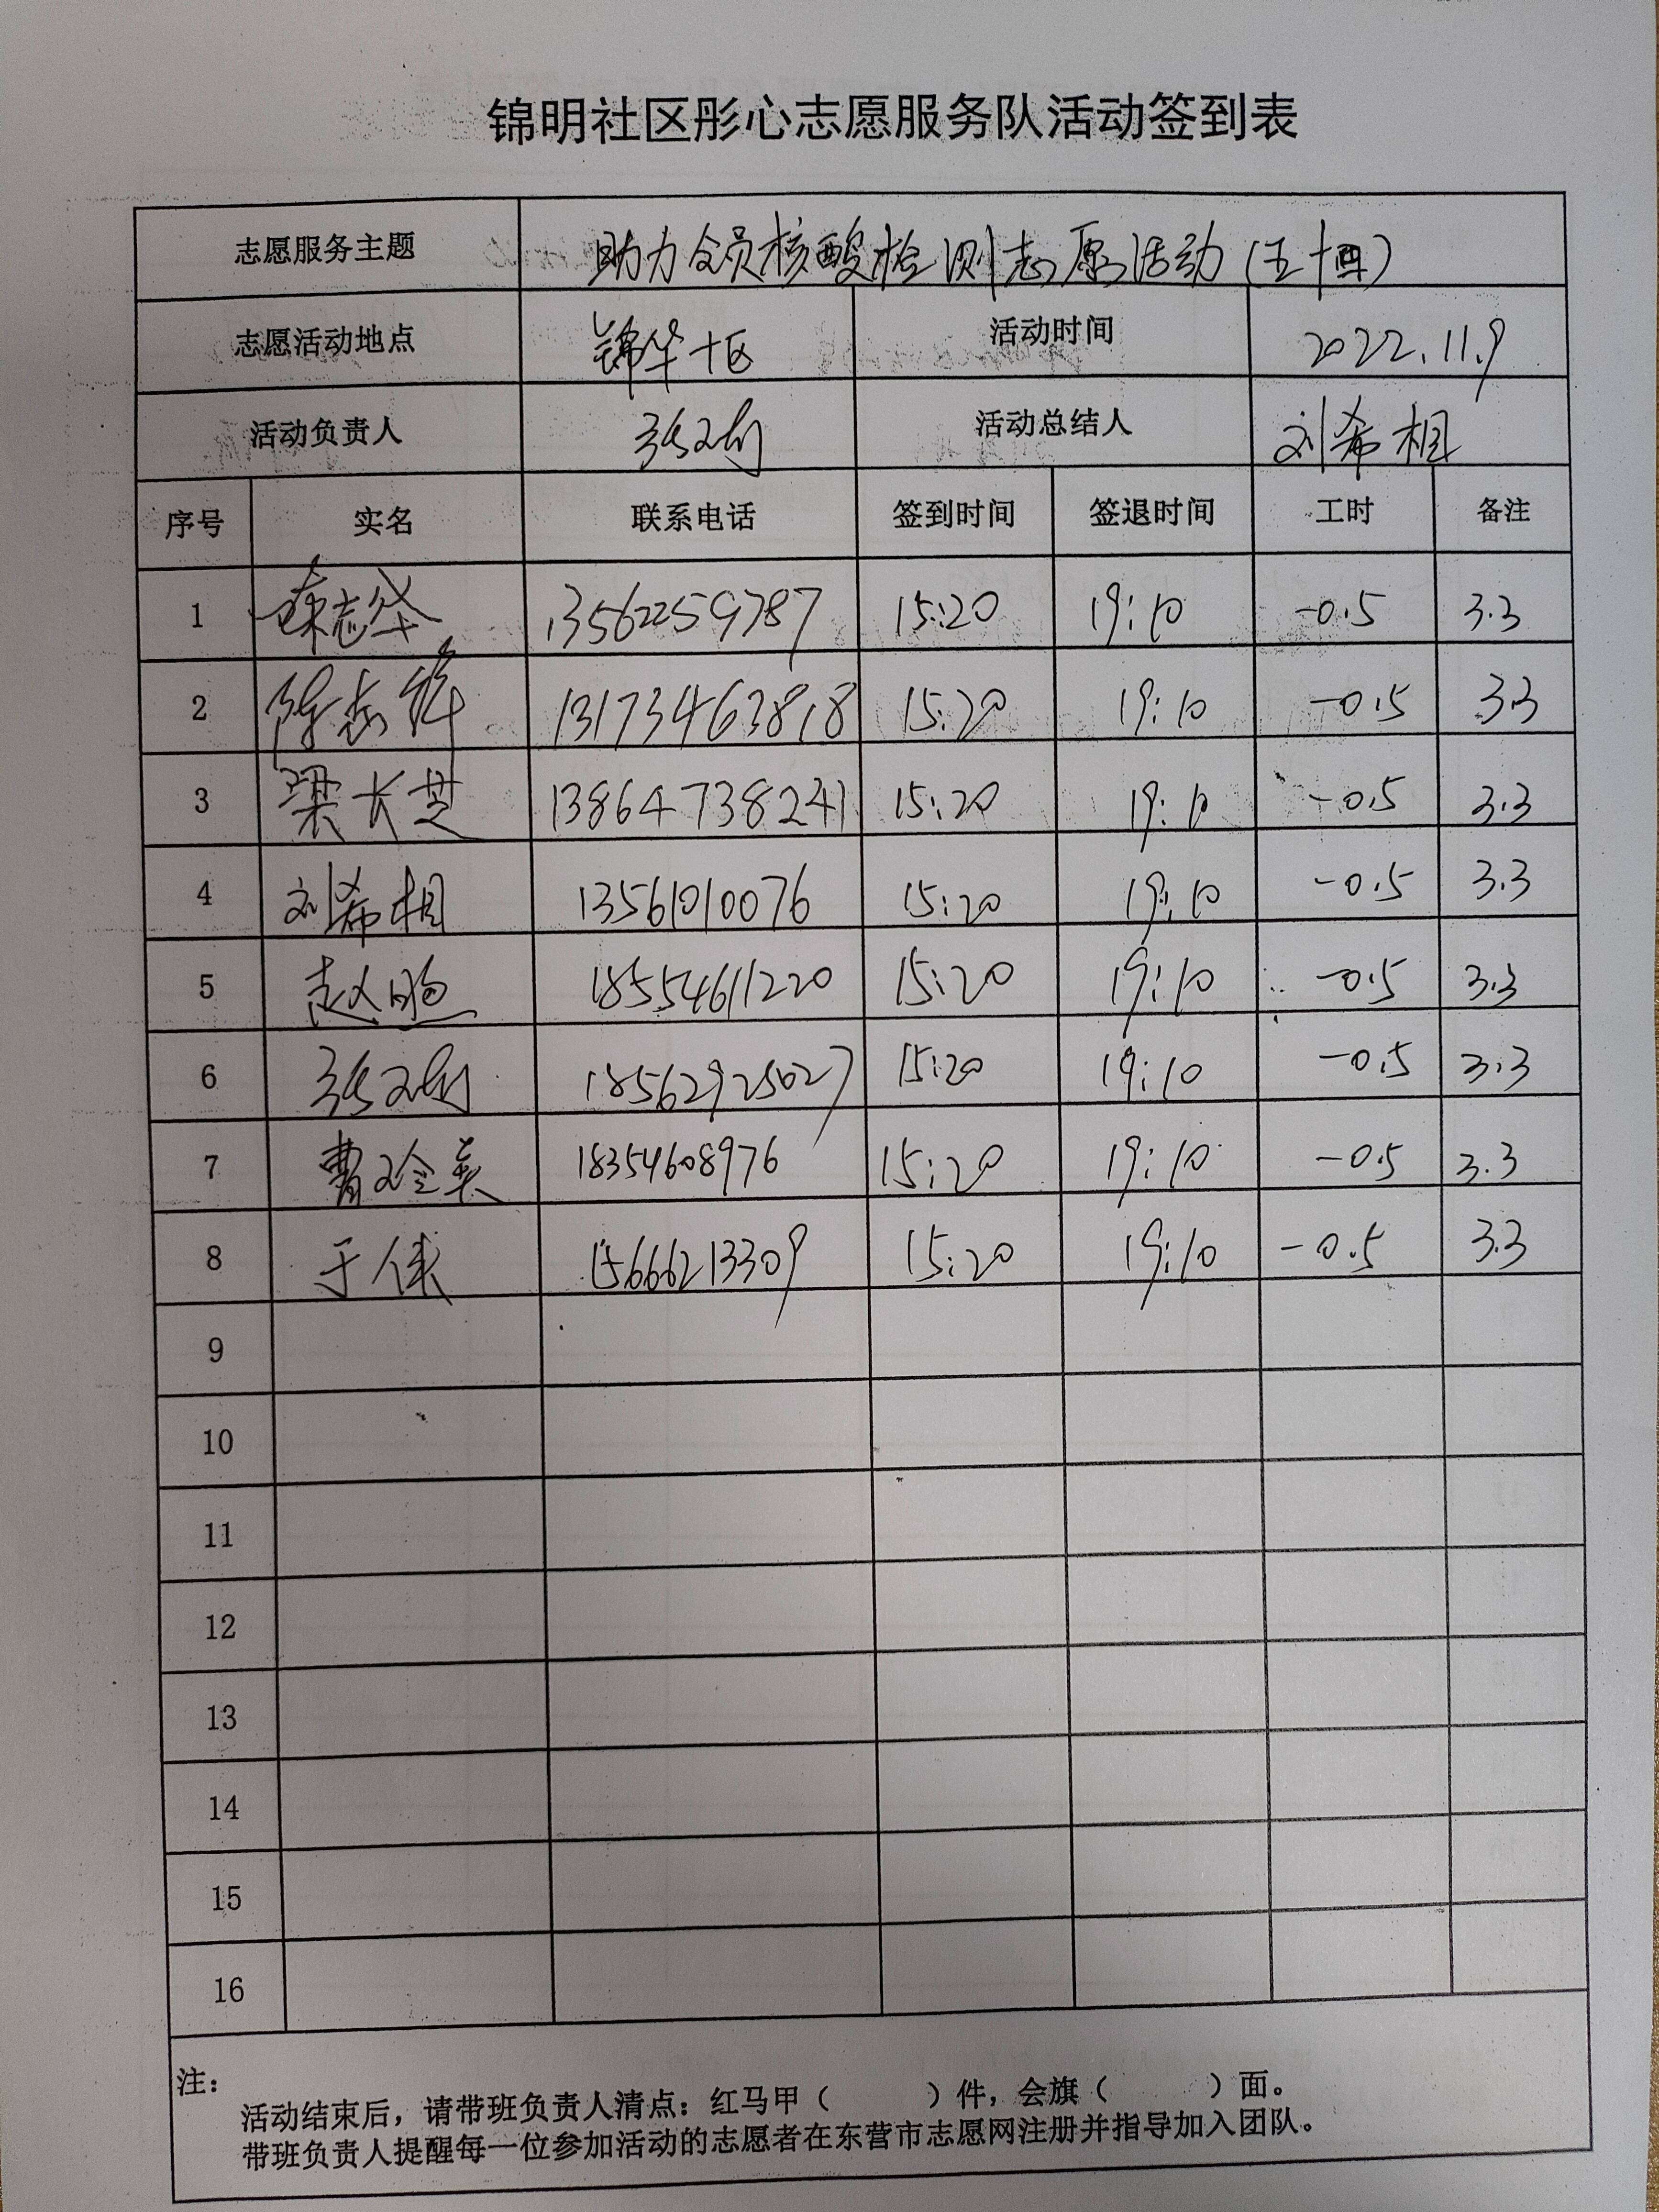 锦明社区彤心志愿服务队活动签到表
志愿服务主题 助力全员核酸检测志愿活动(五十四)
志愿活动地点 锦华十区 活动时间 2022.11.9
活动负责人 张文 活动总结人 刘希相
序号 实名 联系电话 签到时间 签退时间 工时 备注
1 志华 13562259787 15:20 19:10 -0.5 3.3
2 陈志 13173463818 15:20 19:10 -0.5 3.3
3 梁大芝 13864738241 15:20 19:10 -0.5 3.3
4 刘希相 13561010076 15:20 19:10 -0.5 3.3
5 赵 18554611220 15:20 19:10 -0.5 3.3
6 张文 18562925027 15:20 19:10 -0.5 3.3
7 曹玲美 18354608976 15:20 19:10 -0.5 3.3
8 于 15666213309 15:20 19:10 -0.5 3.3
9
10
11
12
13
14
15
16
注:
活动结束后，请带班负责人清点：红马甲（ ）件，会旗（ ）面。
带班负责人提醒每一位参加活动的志愿者在东营市志愿网注册并指导加入团队。